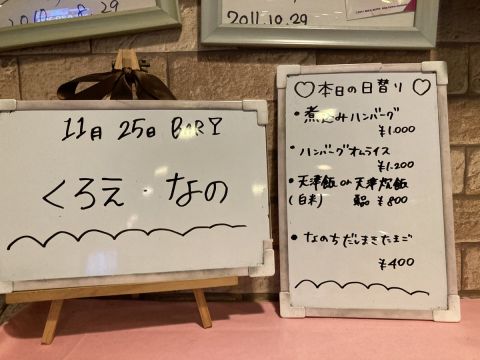 2011.10.29
11月 25日 BAR Y
くろえ・なの
♡本日の日替り♡
・煮込みハンバーグ
¥1.000
・ハンバーグオムライス
¥1.200
・天津飯 or 天津炒飯
(白米) ¥800
・なのちだしまきたまご
¥400